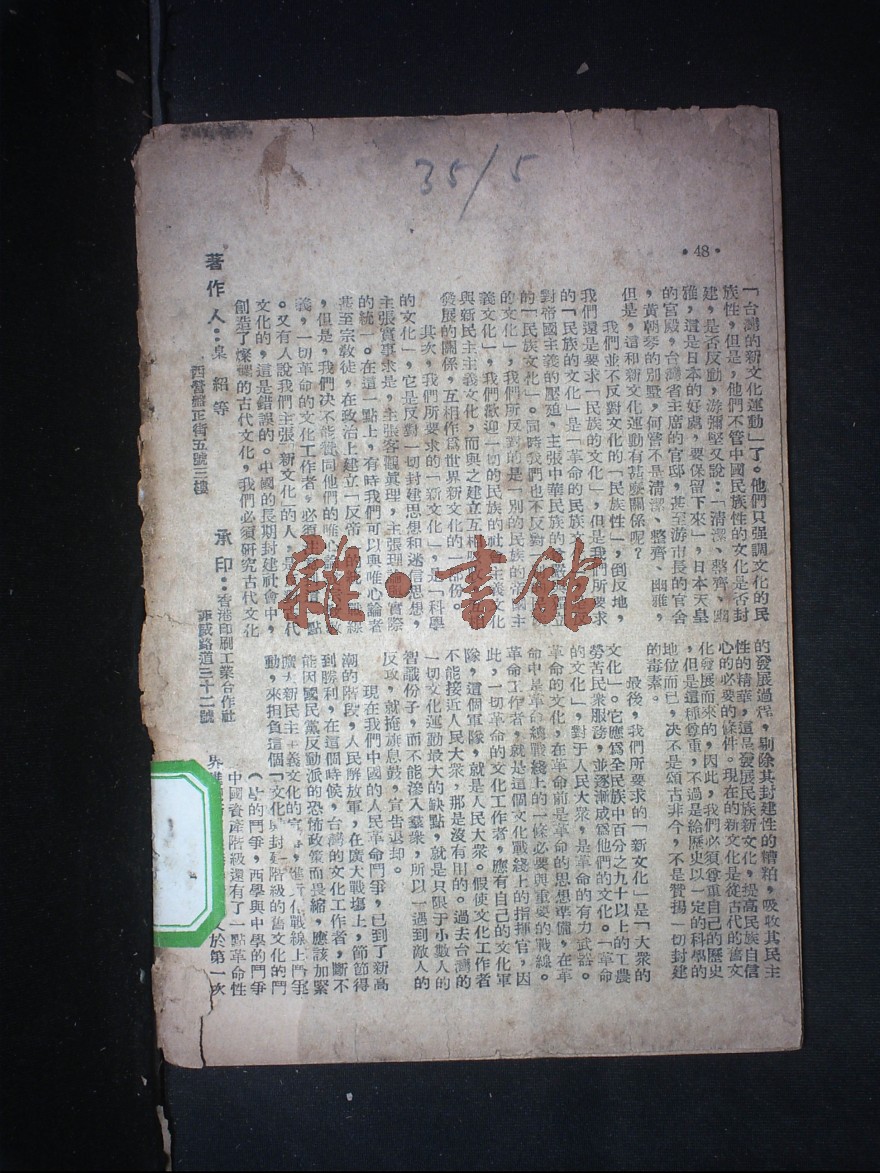 35/5
•48•
「台灣的新文化運動」了。他們只强調文化的民
族性，但是，他們不管中國民族性的文化是否封
建，是否反動，游彌堅又說：「清潔、整齊、幽
雅，這是日本的好處，要保留下來」，日本天皇
的宮殿，台灣省主席的官邸，甚至游市長的官舍
，黃朝琴的別墅，何嘗不是清潔、整齊、幽雅，
但是，這和新文化運動有甚麼關係呢？
我們並不反對文化的「民族性」，倒反地，
我們還是要求「民族的文化」，但是我們所要求
的「民族的文化」是「革命的民族文
對帝國主義的壓廹，主張中華民族的
的「民族文化」。同時我們也不反對
的文化」，我們所反對的是「別的民族的帝國主
義文化」，我們歡迎一切的民族的社會主義文化
與新民主主義文化，而與之建立互相
發展的關係，互相作爲世界新文化的一部份。
其次，我們所要求的「新文化」，是「科學
的文化」，它是反對一切封建思想和迷信思想，
主張實事求是，主張客觀眞理，主張理論與實際
的統一。在這一點上，有時我們可以與唯心論者
甚至宗教徒，在政治上建立「反帝
，但是，我們決不能贊同他們的唯心
義，一切革命的文化工作者，必須
。又有人說我們主張「新文化」的人，是
文化的，這是錯誤的。中國的長期封建社會中，
創造了燦爛的古代文化，我們必須研究古代文化
的發展過程，剔除其封建性的糟粕，吸收其民主
性的精華，這是發展民族新文化，提高民族自信
心的必要的條件。現在的新文化是從古代的舊文
化發展而來的，因此，我們必須尊重自己的歷史
，但是這種尊重，不過是給歷史以一定的科學的
地位而已，决不是頌古非今，不是贊揚一切封建
的毒素。
最後，我們所要求的「新文化」是「大衆的
文化」。它應爲全民族中百分之九十以上的工農
勞苦民衆服務，並逐漸成爲他們的文化。「革命
的文化」，對于人民大衆，是革命的有力武器。
革命的文化，在革命前是革命的思想準備，在革
命中是革命總戰綫上的一條必要與重要的戰線。
革命工作者，就是這個文化戰綫上的指揮官，因
此，一切革命的文化工作者，應有自己的文化軍
隊，這個軍隊，就是人民大衆。假使文化工作者
不能接近人民大衆，那是沒有用的。過去台灣的
一切文化運動最大的缺點，就是只限于小數人的
智識份子，而不能滲入羣衆，所以一遇到敵人的
反攻，就掩旗息鼓，宣告退却。
現在我們中國的人民革命鬥爭，已到了新高
潮的階段，人民解放軍，在廣大戰場上，節節得
到勝利，在這個時候，台灣的文化工作者，斷不
能因國民黨反動派的恐怖政策而畏縮，應該加緊
擴大新民主主義文化的宣傳，進行文化戰線上鬥爭
動，來担負這個「文化
與封建階級的舊文化的鬥
的鬥爭，西學與中學的鬥爭
中國資產階級還有了一點革命性
於第一次
著作人：
紹等
西營盤正街五號三樓
承印：香港印刷工業合作社
菲威路道三十二號
雜·書館